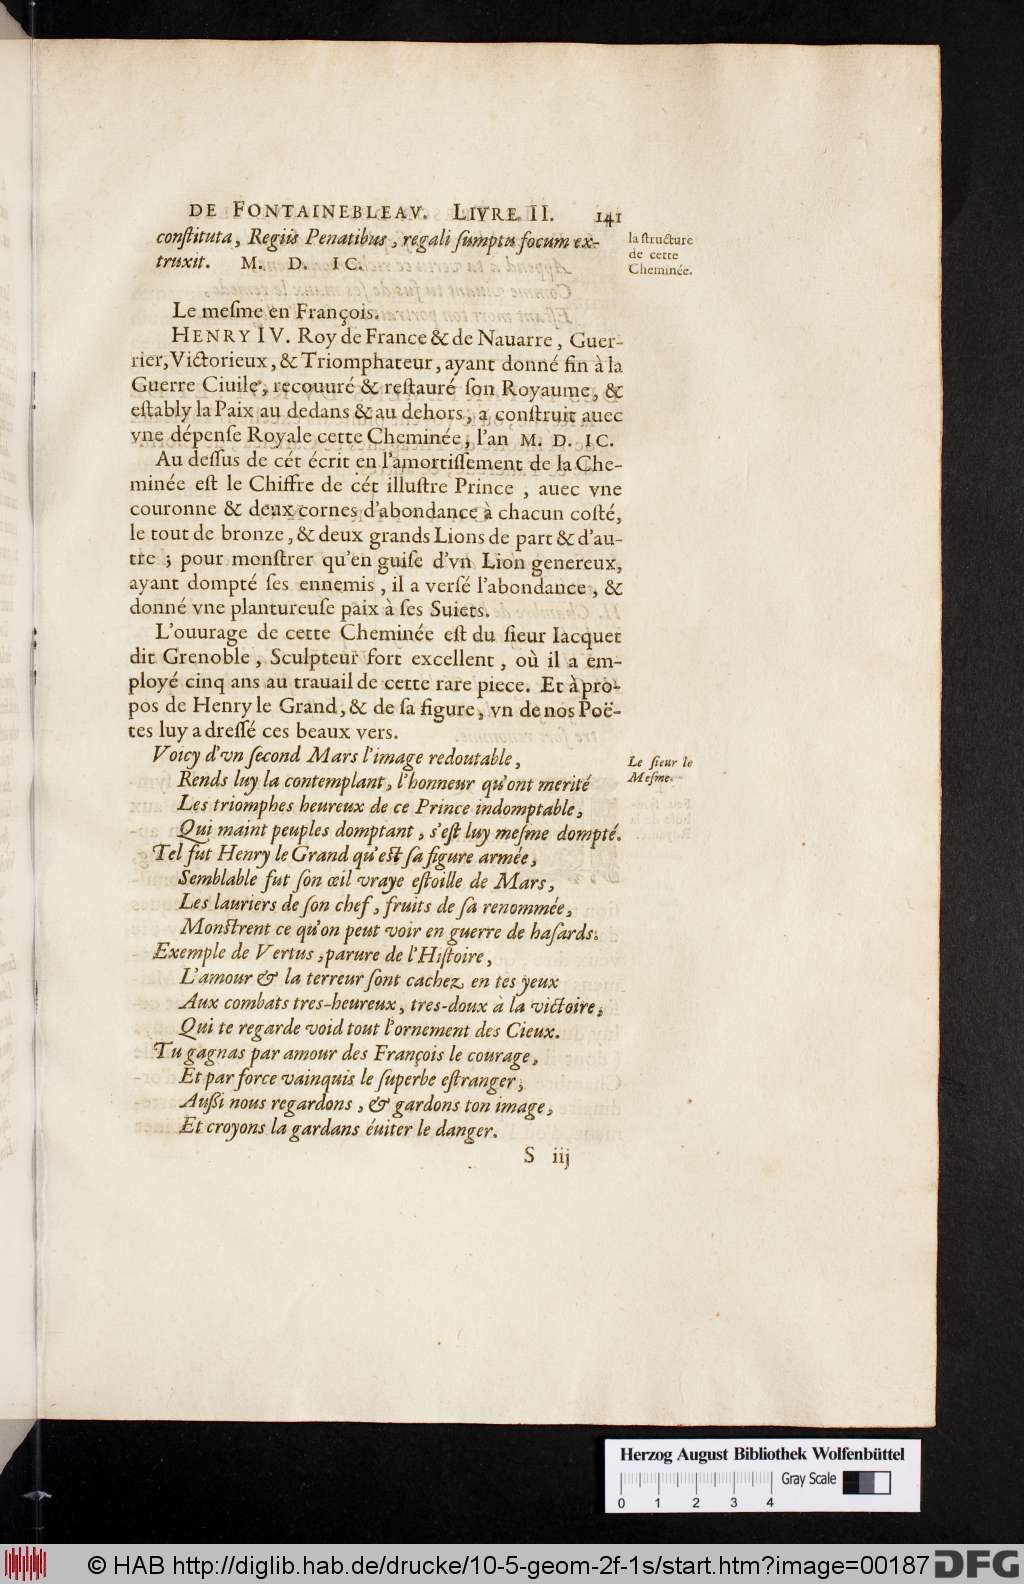 DE FONTAINEBLEAV. LIVRE II. 141
conſtituta, Regiis Penatibus, regali ſumptu focum ex-
truxit. M. D. IC.
la ſtructure
de cette
Cheminée.
Le meſme en François.
HENRY IV. Roy de France & de Nauarre, Guer-
rier, Victorieux, & Triomphateur, ayant donné fin à la
Guerre Ciuile, recouuré & reſtauré ſon Royaume, &
eſtably la Paix au dedans & au dehors, a conſtruit auec
vne dépenſe Royale cette Cheminée, l'an M. D. IC.
Au deſſus de cét écrit en l'amortiſſement de la Che-
minée eſt le Chiffre de cét illuſtre Prince, auec vne
couronne & deux cornes d'abondance à chacun coſté,
le tout de bronze, & deux grands Lions de part & d'au-
tre ; pour monſtrer qu'en guiſe d'vn Lion genereux,
ayant dompté ſes ennemis, il a verſé l'abondance, &
donné vne plantureuſe paix à ſes Suiets.
L'ouurage de cette Cheminée eſt du ſieur Iacquet
dit Grenoble, Sculpteur fort excellent, où il a em-
ployé cinq ans au trauail de cette rare piece. Et à pro-
pos de Henry le Grand, & de ſa figure, vn de nos Poë-
tes luy a dreſſé ces beaux vers.
Voicy d'vn ſecond Mars l'image redoutable,
Le ſieur le
Meſme.
Rends luy la contemplant, l'honneur qu'ont merité
Les triomphes heureux de ce Prince indomptable,
Qui maint peuples domptant, s'eſt luy meſme dompté.
Tel fut Henry le Grand qu'eſt ſa figure armée,
Semblable fut ſon œil vraye eſtoille de Mars,
Les lauriers de ſon chef, fruits de ſa renommée,
Monſtrent ce qu'on peut voir en guerre de haſards.
Exemple de Vertus, parure de l'Hiſtoire,
L'amour & la terreur ſont cachez en tes yeux
Aux combats tres-heureux, tres-doux à la victoire,
Qui te regarde void tout l'ornement des Cieux.
Tu gagnas par amour des François le courage,
Et par force vainquis le ſuperbe eſtranger,
Auſſi nous regardons, & gardons ton image,
Et croyons la gardans éuiter le danger.
S iij
Herzog August Bibliothek Wolfenbüttel
Gray Scale
0 1 2 3 4
© HAB http://diglib.hab.de/drucke/10-5-geom-2f-1s/start.htm?image=00187 DFG